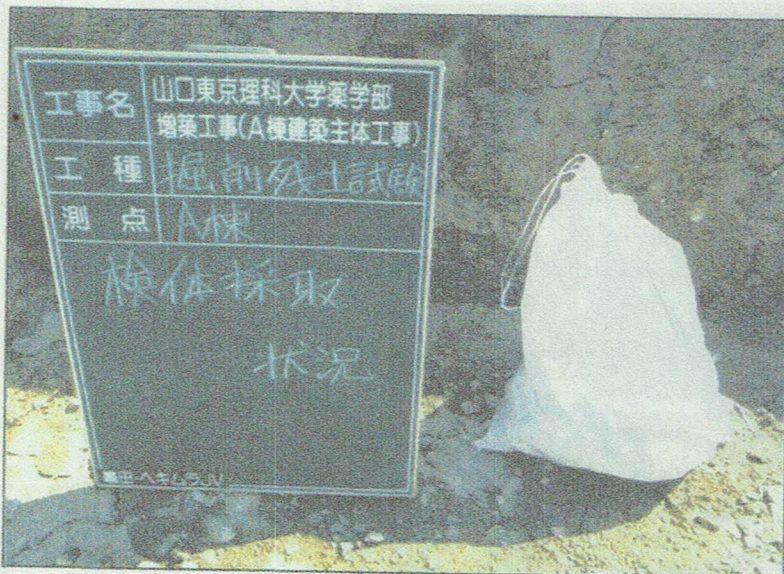 工事名 山口東京理科大学薬学部
増築工事(A棟建築主体工事)
工種 掘削残土試験
測点 A棟
検体採取
状況
ヘキムラJV